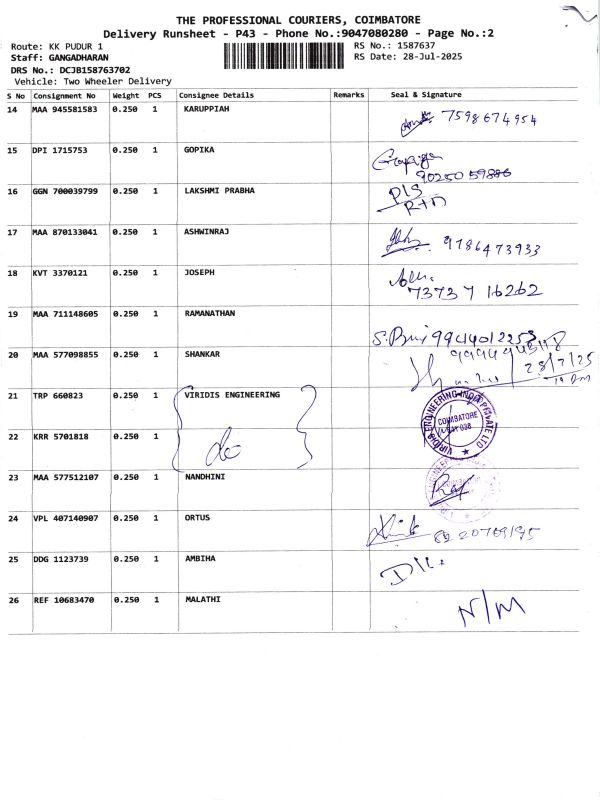 THE PROFESSIONAL COURIERS, COIMBATORE
Delivery Runsheet - P43 - Phone No.:9047080280 - Page No.:2
Route: KK PUDUR 1 RS No.: 1587637
Staff: GANGADHARAN RS Date: 28-Jul-2025
DRS No.: DCJB158763702
Vehicle: Two Wheeler Delivery
S No Consignment No Weight PCS Consignee Details Remarks Seal & Signature
14 MAA 945581583 0.250 1 KARUPPIAH 7598674954
15 DPI 1715753 0.250 1 GOPIKA Gopiga
90250 59886
16 GGN 700039799 0.250 1 LAKSHMI PRABHA D/S
RTN
17 MAA 870133041 0.250 1 ASHWINRAJ 9786473933
18 KVT 3370121 0.250 1 JOSEPH
73737 16262
19 MAA 711148605 0.250 1 RAMANATHAN 9944012253
20 MAA 577098855 0.250 1 SHANKAR
28/7/25
21 TRP 660823 0.250 1 VIRIDIS ENGINEERING VIRIDIS ENGINEERING INDIA PRIVATE LTD
COIMBATORE
22 KRR 5701818 0.250 1 do
23 MAA 577512107 0.250 1 NANDHINI
24 VPL 407140907 0.250 1 ORTUS
25 DDG 1123739 0.250 1 AMBIHA D/L.
26 REF 10683470 0.250 1 MALATHI N/M